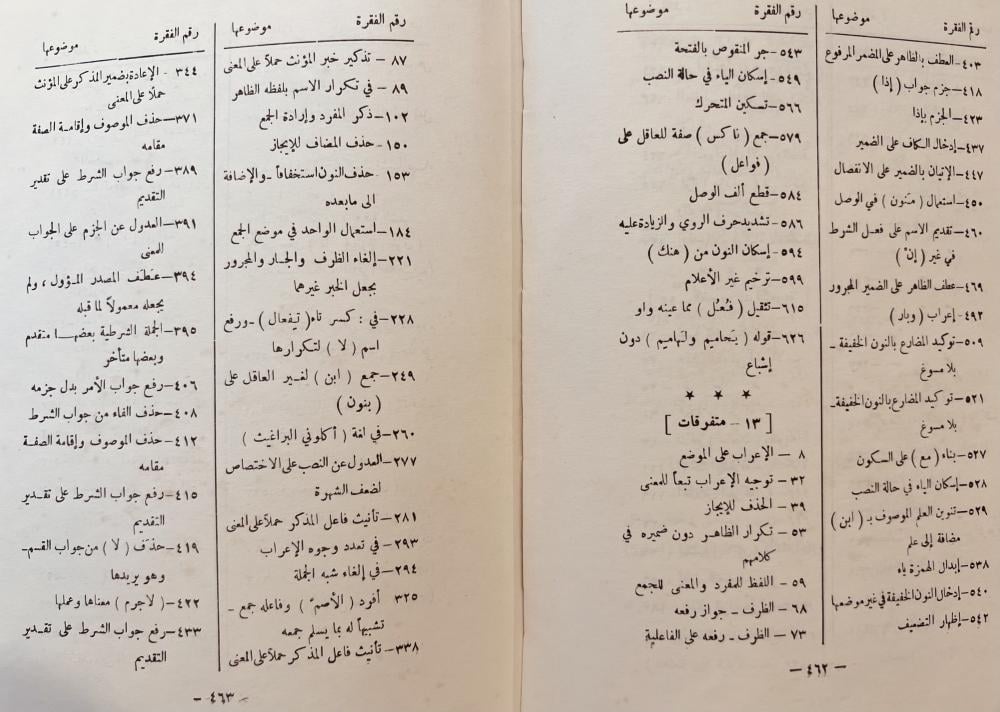 رقم الفقرة موضوعها
٤٠٣-العطف بالظاهر على المضمر المرفوع
٤١٨-جزم جواب ( إذا )
٤٢٣-الجزم بإذا
٤٣٧-إدخال الكاف على الضمير
٤٤٧-الإتيان بالضمير على الانفصال
٤٥٠-استعمال ( مَنون ) في الوصل
٤٦٠-تقديم الاسم على فعل الشرط
في غير ( إنْ )
٤٦٩-عطف الظاهر على الضمير المجرور
٤٩٢-إعراب ( وبار )
٥٠٩-توكيد المضارع بالنون الخفيفة -
بلا مسوغ
٥٢١-توكيد المضارع بالنون الخفيفة-
بلا مسوغ
٥٢٧-بناء ( مع ) على السكون
٥٢٨-إسكان الياء في حالة النصب
٥٢٩-تنوين العلم الموصوف بـ ( ابن )
مضافة إلى علم
٥٣٨-إبدال الهمزة ياء
٥٤٠-إدخال النون الخفيفة في غير موضعها
٥٤٢-إظهار التضعيف
رقم الفقرة موضوعها
٥٤٣-جر المنقوص بالفتحة
٥٤٩-إسكان الياء في حالة النصب
٥٦٦-تسكين المتحرك
٥٧٩-جمع ( ناكس ) صفة للعاقل على
( فواعل )
٥٨٤-قطع ألف الوصل
٥٨٦-تشديد حرف الروي والزيادة عليه
٥٩٤-إسكان النون من ( هنك )
٥٩٩-ترخيم غير الأعلام
٦١٥-تثقيل ( فُعُل ) مما عينه واو
٦٢٦-قوله ( يَحاميم ولَهاميم ) دون
إشباع
★ ★ ★
[ ١٣ - متفرقات ]
٨ - الإعراب على الموضع
٣٢ - توجيه الإعراب تبعاً للمعنى
٣٩ - الحذف للإيجاز
٥٣ - تكرار الظاهر دون ضميره في
كلامهم
٥٩ - اللفظ للمفرد والمعنى للجمع
٦٨ - الظرف - جواز رفعه
٧٣ - الظرف - رفعه على الفاعلية
- ٤٦٢ -
رقم الفقرة موضوعها
٨٧ - تذكير خبر المؤنث حملاً على المعنى
٨٩ - في تكرار الاسم بلفظه الظاهر
١٠٢-ذكر المفرد وإرادة الجمع
١٥٠- حذف المضاف للإيجاز
١٥٣ -حذف النون استخفافاً -والإضافة
الى ما بعده
١٨٤-استعمال الواحد في موضع الجمع
٢٢١-إلغاء الظرف والجار والمجرور
بجعل الخبر غيرهما
٢٢٨-في : كسر تاء( تِفعال ) -ورفع
اسم ( لا ) لتكرارها
٢٤٩-جمع ( ابن ) لغير العاقل على
( بنون )
٢٦٠-في لغة ( أكلوني البراغيث )
٢٧٧-العدول عن النصب على الاختصاص
لضعف الشهرة
٢٨١-تأنيث فاعل المذكر حملاً على المعنى
٢٩٣-في تعدد وجوه الإعراب
٢٩٤-في إلغاء شبه الجملة
٣٢٥ أفرد ( الأصمّ ) وفاعله جمع -
تشبيهاً له بما يسلم جمعه
٣٣٨-تأنيث فاعل المذكر حملاً على المعنى
رقم الفقرة موضوعها
٣٤٤ - الإعادة بضمير المذكر على المؤنث
حملاً على المعنى
٣٧١-حذف الموصوف وإقامة الصفة
مقامه
٣٨٩-رفع جواب الشرط على تقدير
التقديم
٣٩١-العدول عن الجزم على الجواب
للمعنى
٣٩٤-عطف المصدر المؤول ، ولم
يجعله معمولاً لما قبله
٣٩٥-الجملة الشرطية بعضها متقدم
وبعضها متأخر
٤٠٦-رفع جواب الأمر بدل جزمه
٤٠٨-حذف الفاء من جواب الشرط
٤١٢-حذف الموصوف وإقامة الصفة
مقامه
٤١٥-رفع جواب الشرط على تقدير
التقديم
٤١٩-حذف ( لا ) من جواب القسم-
وهو يريدها
٤٢٢-( لاجرم ) معناها وعملها
٤٣٣-رفع جواب الشرط على تقدير
التقديم
- ٤٦٣ -